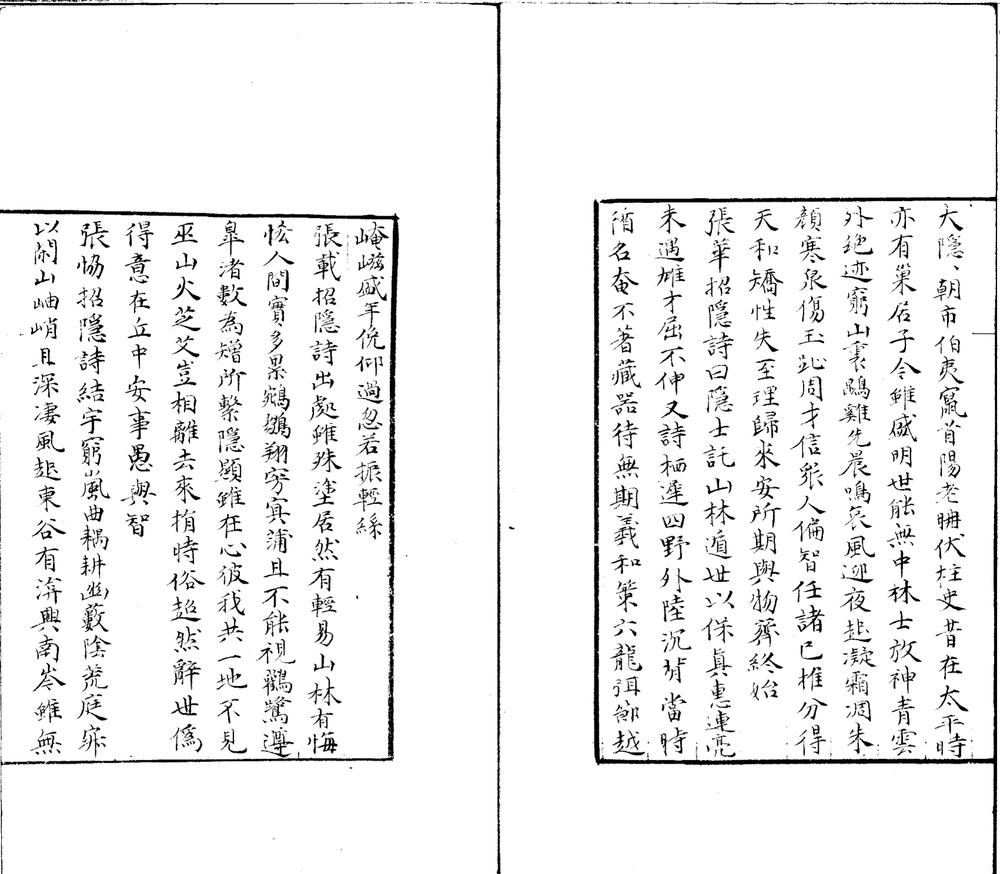 大隱、朝市伯夷竄首陽老聃伏柱史昔在太平時
亦有巢居子今雖盛明世能無中林士放神青雲
外絶迹窮山裏鵾雞先晨鳴哀風迎夜起凝霜凋朱
顔寒泉傷玉趾周才信衆人偏智任諸已推分得
天和矯性失至理歸來安所期與物齊終始
張華招隱詩曰隱士託山林遁世以保真惠連亮
未遇雄才屈不伸又詩栖遲四野外陸沉背當時
循名奄不著藏器待無期羲和策六龍弭節越
崦嵫盛年俛仰過忽若振輕絲
張載招隱詩出處雖殊塗居然有輕易山林有悔
恡人間實多累鵷鶵翔穷冥蒲且不能視鸛鷺遵
臯渚數為矰所繫隱顯雖在心彼我共一地不見
巫山火芝艾豈相離去來捐時俗超然辭世僞
得意在丘中安事愚與智
張恊招隱詩結宇窮嵐曲耦耕幽藪陰荒庭寂
以閑山岫峭且深凄風起東谷有渰興南岑雖無